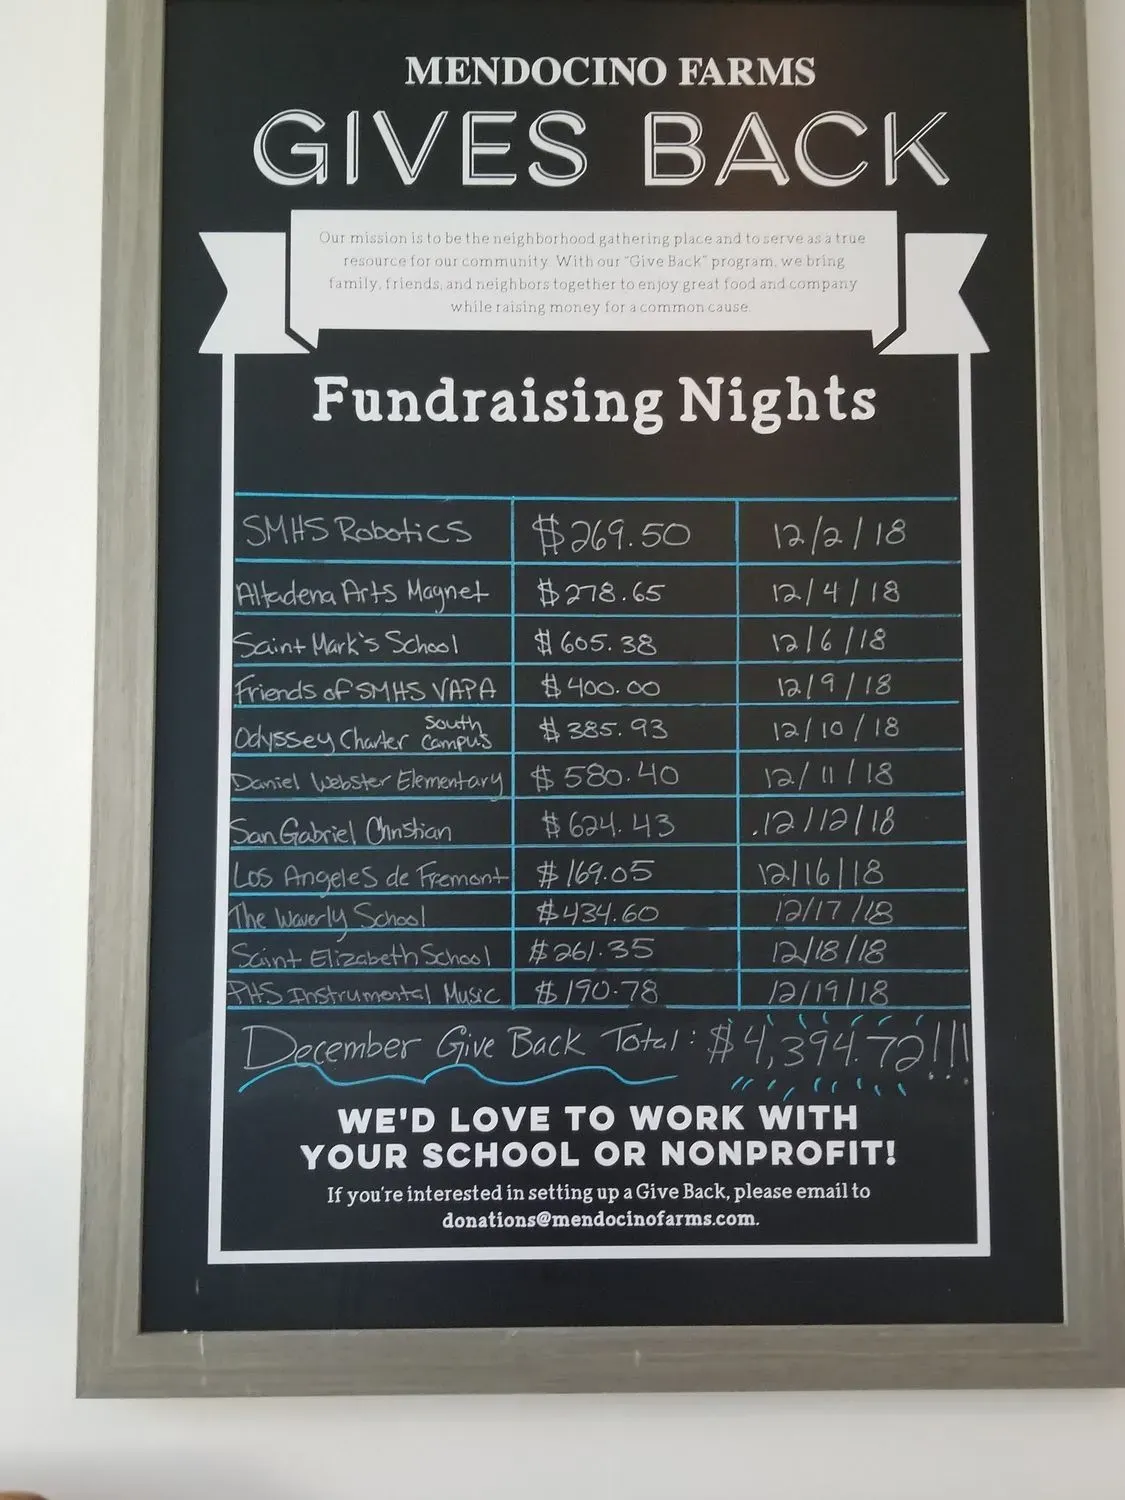 MENDOCINO FARMS
GIVES BACK
Our mission is to be the neighborhood gathering place and to serve as a true
resource for our community. With our "Give Back" program, we bring
family, friends, and neighbors together to enjoy great food and company
while raising money for a common cause.
Fundraising Nights
SMHS Robotics $269.50 12/2/18
Altadena Arts Magnet $278.65 12/4/18
Saint Mark's School $605.38 12/6/18
Friends of SMHS VAPA $400.00 12/9/18
Odyssey Charter South Campus $385.93 12/10/18
Daniel Webster Elementary $580.40 12/11/18
San Gabriel Christian $624.43 12/12/18
Los Angeles de Fremont $169.05 12/16/18
The Waverly School $434.60 12/17/18
Saint Elizabeth School $261.35 12/18/18
PHS Instrumental Music $190.78 12/19/18
December Give Back Total: $4,394.72!!!
WE'D LOVE TO WORK WITH
YOUR SCHOOL OR NONPROFIT!
If you're interested in setting up a Give Back, please email to
donations@mendocinofarms.com.